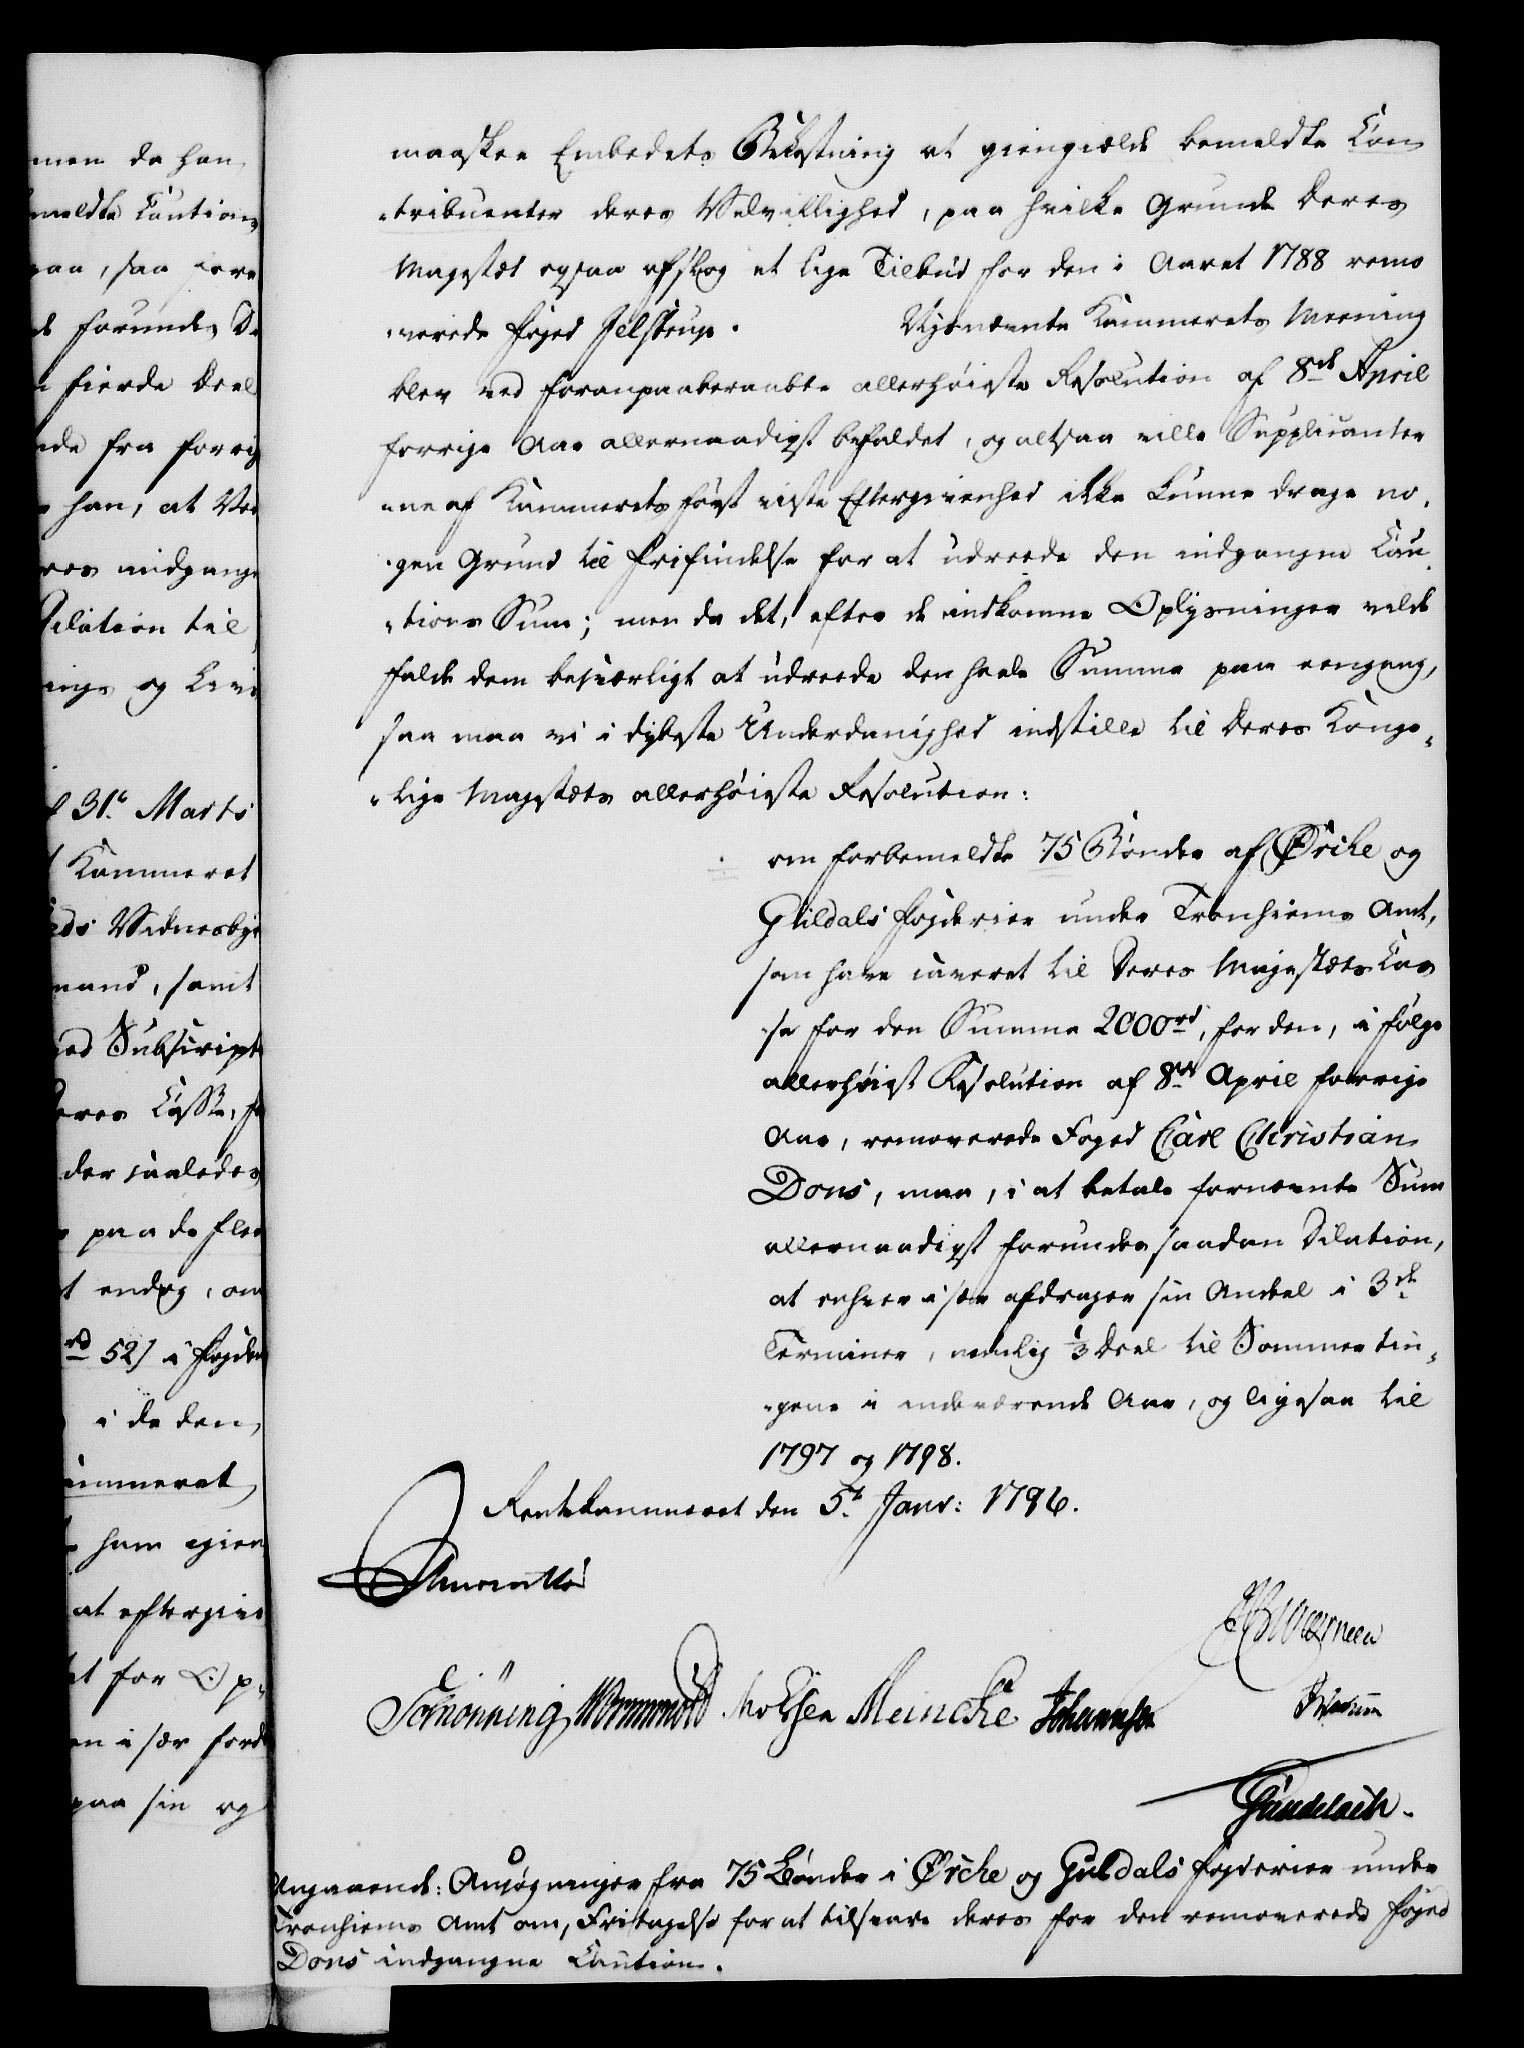 men da han
meldte Cautions
paa, saa
forundes De
fierde Deel
fra forrig
han, at Ved
indgangne
Dilation til
og
31t Marts
Kammeret
Vidnesbyr
mand, samt
Subscript
Deres Casse, f
der saaledes
paa de fleer
t endog, om
rd 52) i Fogder
i de den,
Kammeret,
ham igien
at eftergive
for Op-
en i sær ford
paa sin og
maaskee Embedets Bekostning at giengielde bemeldte Con
-tribuenter deres Velvillighed, paa hvilke Grunde Deres
Majestæt ogsaa afslog et lige Tilbud for den i Aaret 1788 remo
-verede Foged Jelstrup. Nysnævnte Kammerets Meening
blev ved foranpaaberaabte allerhöieste Resolution af 8de April
forrige Aar allernaadigst befaldet, og altsaa ville Supplicanter
-ne af Kammerets först viiste Eftergivenhed ikke kunne drage no-
-gen Grund til Frifindelse for at udreede den indgangne Cau
-tions Sum; men da det, efter de indkomne Oplysninger vilde
falde dem besværligt at udreede den heele Summa paa eengang,
saa maa vi i dybeste Underdanighed indstille til Deres Konge-
-lige Majestæts allerhöieste Resolution:
om forbemeldte 75 Bönder af Örche og
Guldals Fogderier under Tronhiems Amt,
som have caveret til Deres Majestæts Cas
-se for den Summa 2000rd, for den, i fölge
allerhöiest Resolution af 8de April forrige
Aar, removerede Foged Carl Christian
Dons, maa, i at betale fornævnte Sum
allernaadigst forundes saadan Dilation,
at enhver i sær afdrager sin Andeel i 3de
Terminer, nemlig 1/3 Deel til Sommertin-
-gene i indeværende Aar, og ligesaa til
1797 og 1798.
Rentekammeret den 5t Janv: 1796.
Schönning Wormskiold Meincke Johannsen
Gundelach.
Angaaende: Ansögninger fra 75 Bönder i Örche og Guldals Fogderier under
Tronhiems Amt om, Fritagelse for at tilsvare deres for den removerede Foged
Dons indgangne Caution.